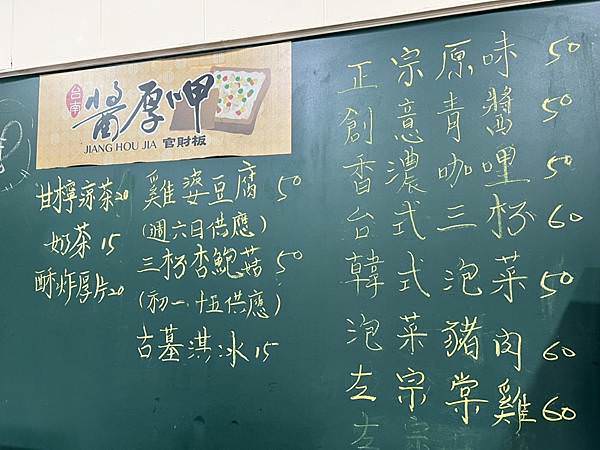 台南
醬厚呷
JIANG HOU JIA 官財板
甘檸涼茶20
奶茶 15
酥炸厚片20
雞婆豆腐 50
(週六日供應)
三杯杏鮑菇 50
(初一、十五供應)
古墓洪冰 15
正宗原味 50
創意青醬 50
香濃咖哩 50
台式三杯 60
韓式泡菜 50
泡菜豬肉 60
左宗棠雞 60
左宗